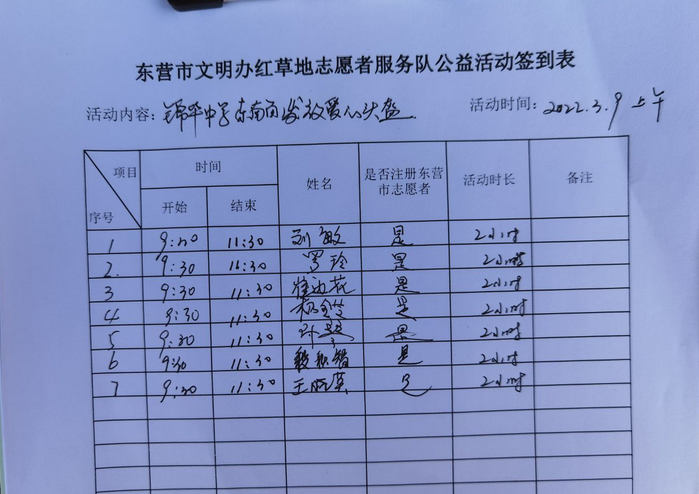 东营市文明办红草地志愿者服务队公益活动签到表
活动内容：锦华中学东南门发放爱心头盔 活动时间：2022.3.9 上午
项目 序号 时间 姓名 是否注册东营市志愿者 活动时长 备注
开始 结束
1 9:30 11:30 刘敏 是 2小时
2 9:30 11:30 罗玲 是 2小时
3 9:30 11:30 是 2小时
4 9:30 11:30 是 2小时
5 9:30 11:30 是 2小时
6 9:30 11:30 是 2小时
7 9:30 11:30 王晓英 是 2小时